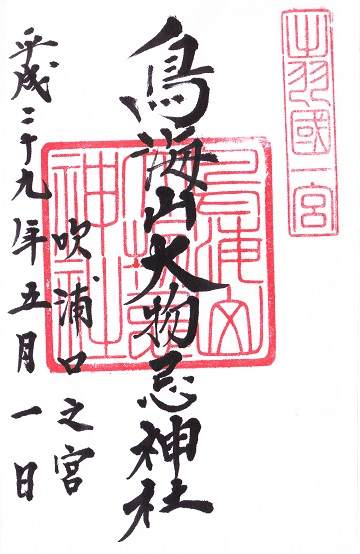 出羽國一宮
鳥海山大物忌神社
鳥海山大物忌神社
吹浦口之宮
平成二十九年五月一日